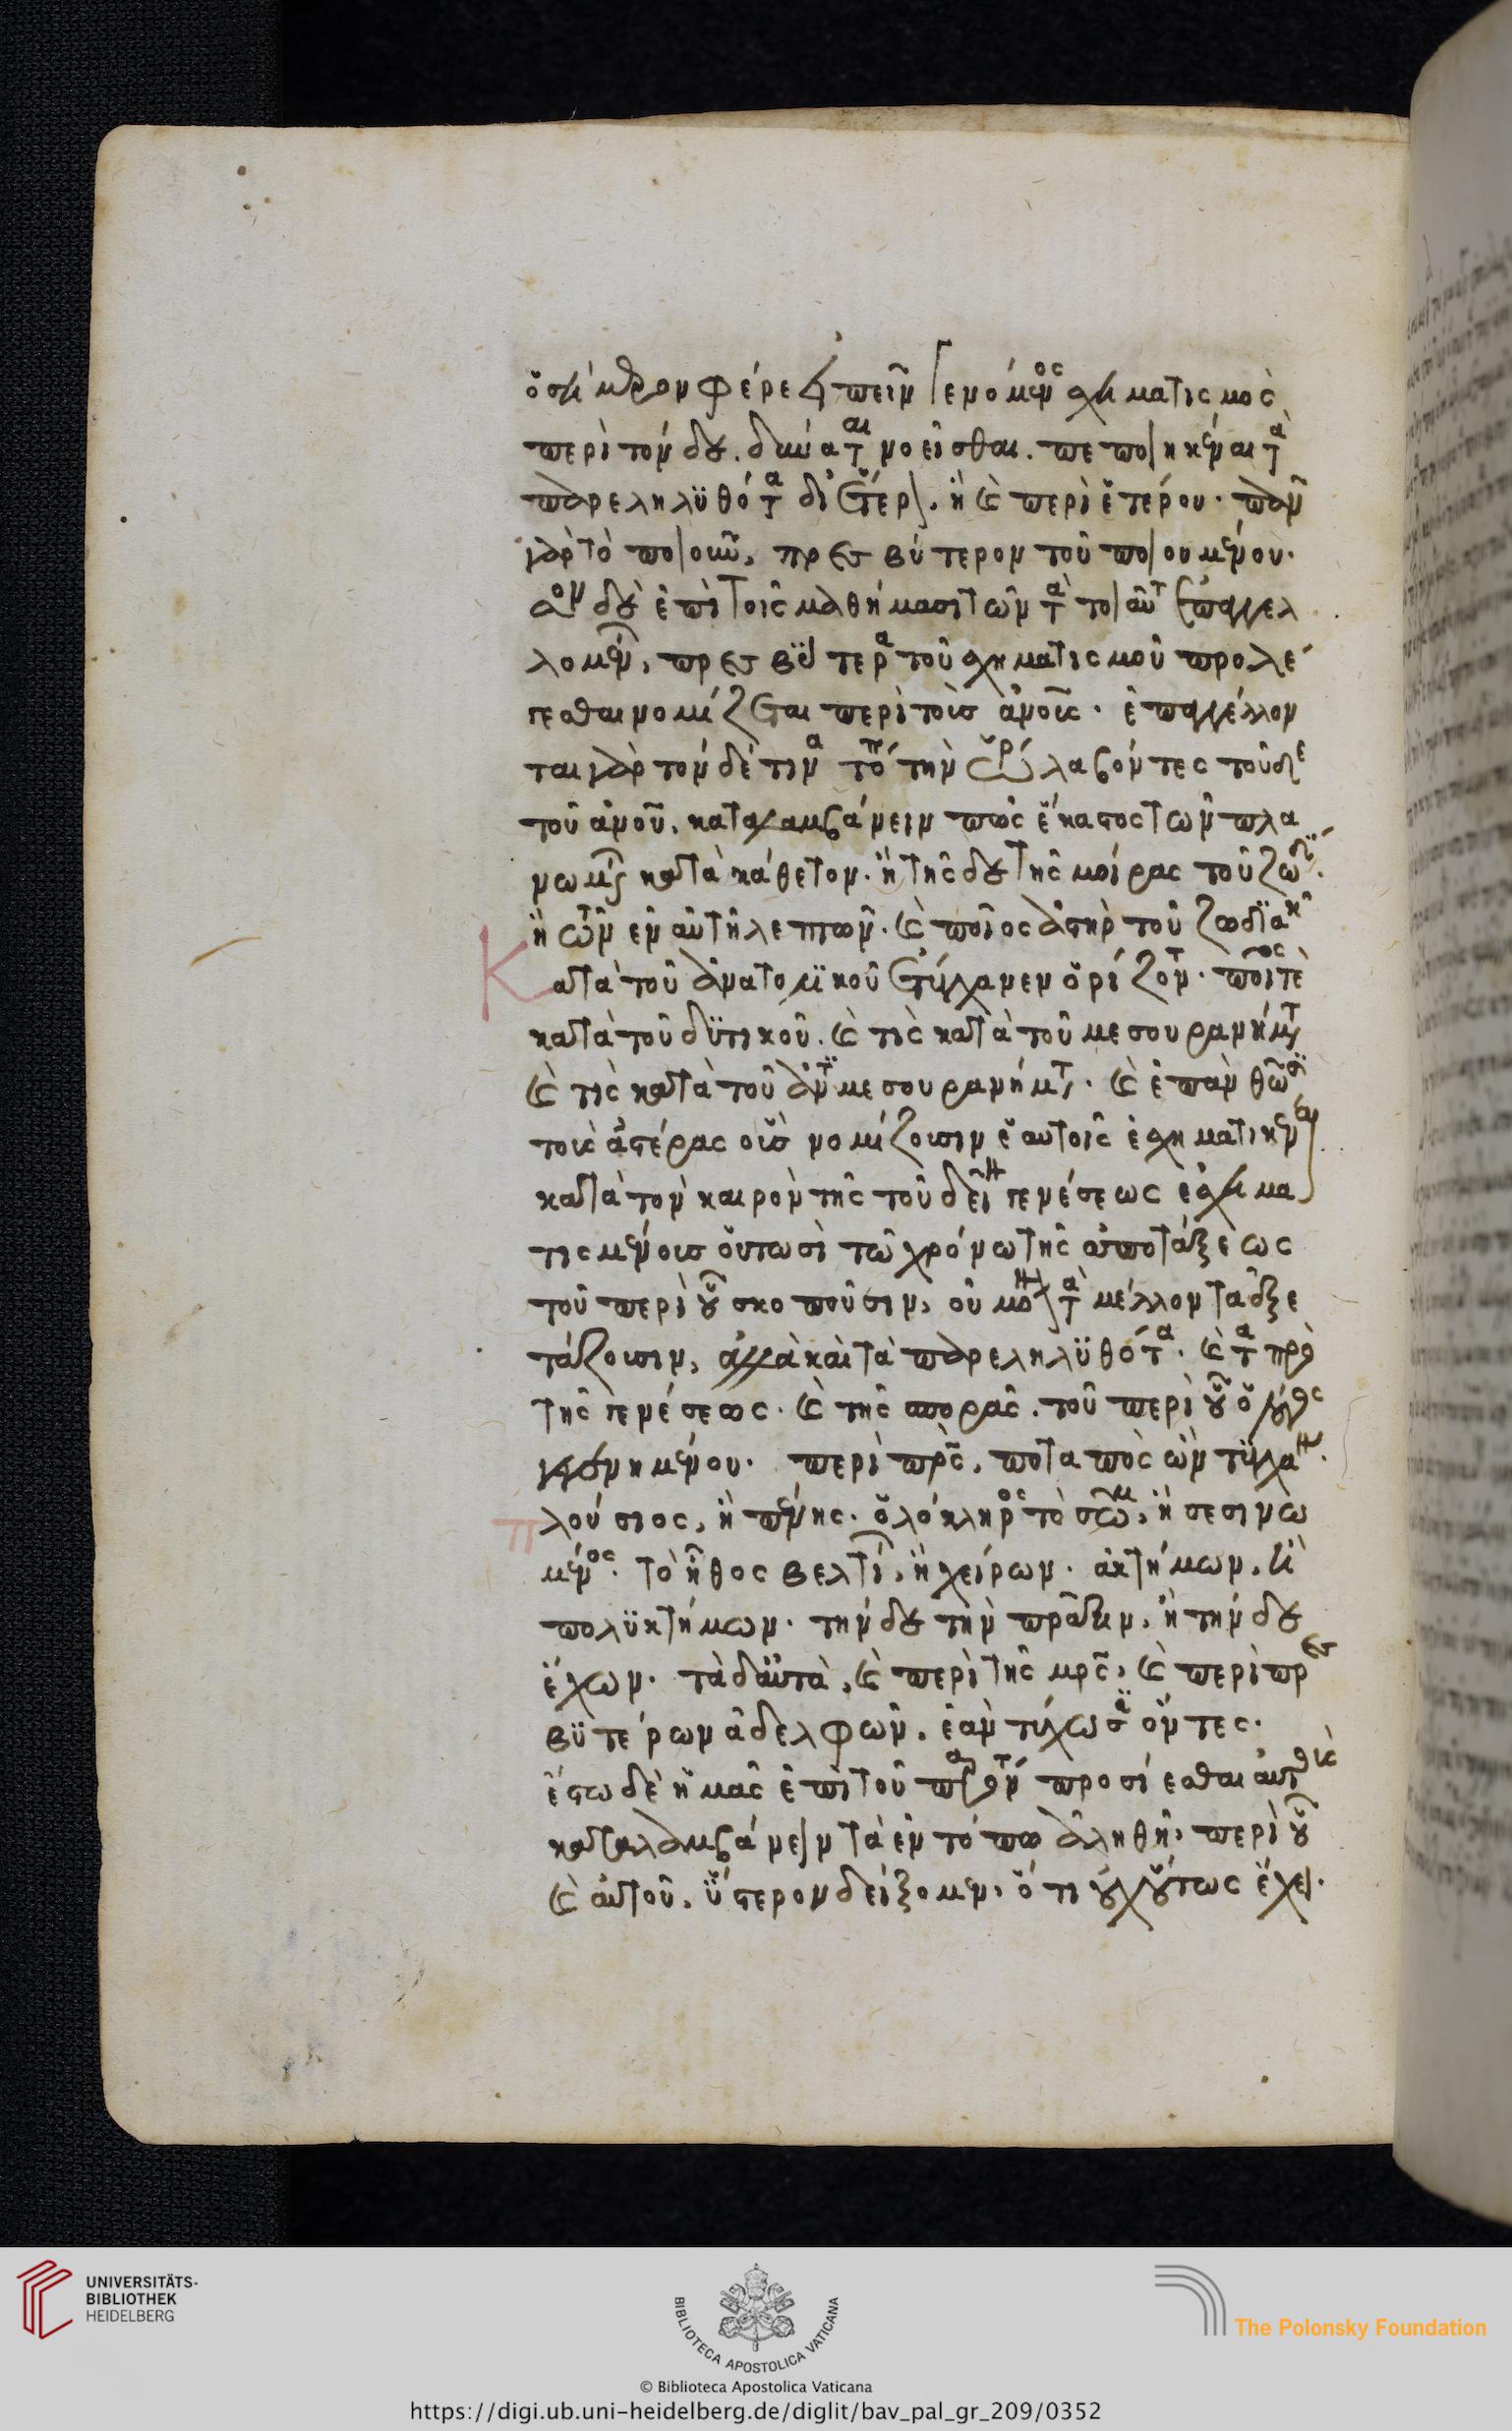 ὁ σήμερον φέρε εἰπεῖν γενόμενος σχηματισμὸς
περὶ τόνδε. δύναται νοεῖσθαι. πεποιηκέναι τὰ
παρεληλυθότα δι ἕτερ. ἢ καὶ περὶ ἑτέρου. πᾶν
γὰρ τὸ ποιοῦν, πρεσβύτερον τοῦ ποιουμένου.
ὅσον δὲ ἐπὶ τοῖς μαθήμασι τῶν τὰ τοιαῦτ ἐπαγγελ
λομέν, πρεσβύτερα τοῦ σχηματισμοῦ προλέ
γεσθαι νομίζεται περὶ τοὺς ἀνους. ἐπαγγέλλον
ται γὰρ τόνδε τινα τρόπ τὴν ὥρ λαβόντες τοῦδε
τοῦ ἀνου. καταλαμβάνειν πῶς ἕκαστος τῶν πλα
νωμέν κατὰ κάθετον. ἢ τῆσδε τῆς μοίρας τοῦ ζωδί.
ἢ τῶν ἐν αὐτῆ λεπτῶν. καὶ ποῖος ἀστὴρ τοῦ ζωδϊακ
Κατὰ τοῦ ἀνατολϊκοῦ ἐτύγχανεν ὁρίζοντ. ποῖός τὲ
κατὰ τοῦ δϋτικοῦ. καὶ τὶς κατὰ τοῦ μεσουρανήματ
καὶ τὶς κατὰ τοῦ ἀντϊμεσουρανήματ. καὶ ἐπὰν θῶσϊ
τοὺς ἀστέρας οὓς νομίζουσιν ἑαυτοῖς ἐσχηματικέναι
κατὰ τὸν καιρὸν τῆς τοῦ δεῖν γενέσεως ἐσχημα
τισμένους οὕτωσὶ τῶ χρόνω τῆς ἀποτάξεως
τοῦ περὶ οὗ σκοποῦσιν, οὐ μόν τὰ μέλλοντα ἐξε
τάζουσιν, ἀλλὰ καὶ τὰ παρεληλϋθότα. καὶ τα πρὸ
τῆς γενέσεως. καὶ τῆς σπορᾶς. τοῦ περὶ οὗ ὁ λόγος
γεγενημένου. περὶ πρς, ποταπὸς ὢν τϋγχαν.
πλούσιος, ἢ πένης. ὁλόκληρος τὸ σῶμ, ἢ σεσινω
μένος. τὸ ἦθος βελτί, ἢ χείρων. ἀκτήμων, ἢ
πολϋκτήμων. τήνδε τὴν πρᾶξιν, ἢ τήνδε
ἔχων. τὰ δ αὐτὰ, καὶ περὶ τῆς μρς, καὶ περὶ πρεσ
βϋτέρων ἀδελφῶν, ἐὰν τύχωσϊ ὄντες.
ἔστω δὲ ἡμᾶς ἐπὶ τοῦ παρόντ προσίεσθαι αὐτοὺς
καταλαμβάνειν τὰ ἐν τόπω ἀληθῆ, περὶ οὗ
καὶ αὐτοῦ, ὕστερον δείξομεν, ὅτι οὐχ οὕτως ἔχει.
UNIVERSITÄTS-
BIBLIOTHEK
HEIDELBERG
BIBLIOTECA APOSTOLICA VATICANA
The Polonsky Foundation
© Biblioteca Apostolica Vaticana
https://digi.ub.uni-heidelberg.de/diglit/bav_pal_gr_209/0352